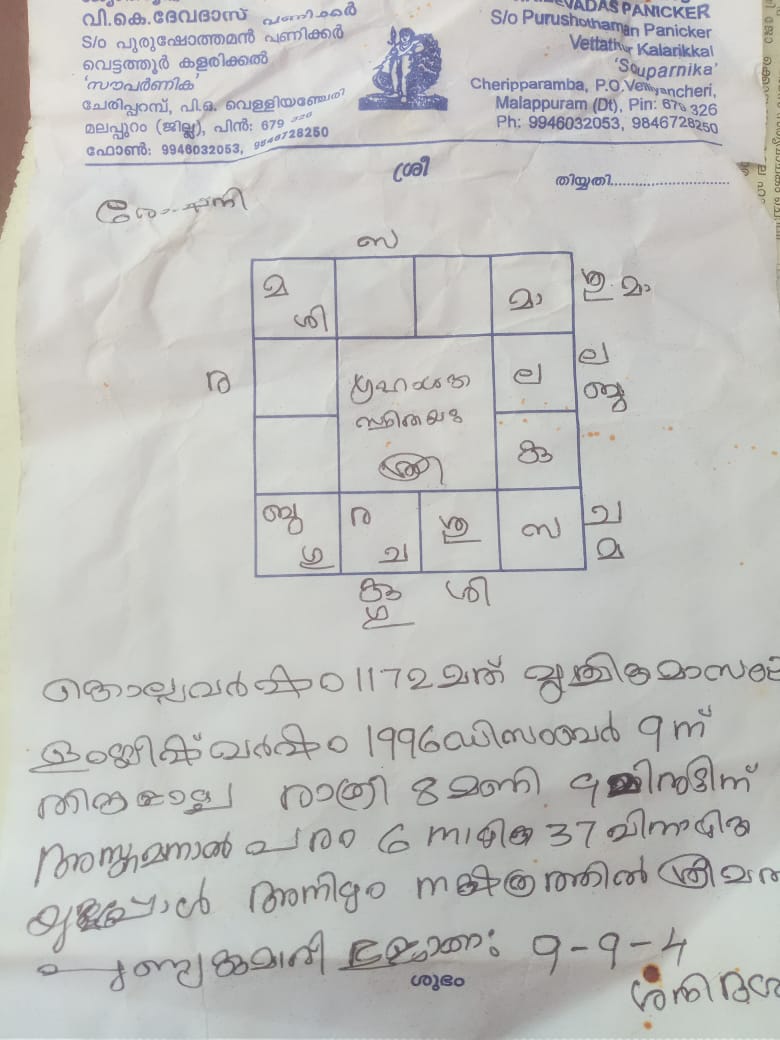 വി.കെ.ദേവദാസ് പണിക്കർ
S/o പുരുഷോത്തമൻ പണിക്കർ
വെട്ടത്തൂർ കളരിക്കൽ
'സൗപർണിക'
ചേരിപ്പറമ്പ്, പി.ഒ. വെള്ളിയഞ്ചേരി
മലപ്പുറം (ജില്ല), പിൻ: 679 326
ഫോൺ: 9946032053, 9846728250
DEVADAS PANICKER
S/o Purushothaman Panicker
Vettathur Kalarikkal
'Souparnika'
Cheripparamba, P.O.Velliyancheri,
Malappuram (Dt), Pin: 679 326
Ph: 9946032053, 9846728250
ശ്രീ
തിയ്യതി..............................
സ
മ ശി മാ ഗു മാ
ര ല ല ബു
ഗ്രഹ
സ്ഥിതയഃ
ശ്രീ
കു
ബു ഗു ര ച ശു സ ച മ
കു ഗു ശി
കൊല്ലവർഷം 1172 മത് വൃശ്ചികമാസം
ഇംഗ്ലീഷ് വർഷം 1996 ഡിസംബർ 9 ന്
തിങ്കളാഴ്ച രാത്രി 8 മണി 9 മിനുട്ടിന്
അസ്തമനാൽ പരം 6 നാഴിക 37 വിനാഴിക
അനിഴം നക്ഷത്രത്തിൽ സ്ത്രീ
9-9-4
ശുഭം
ശനി ദശ